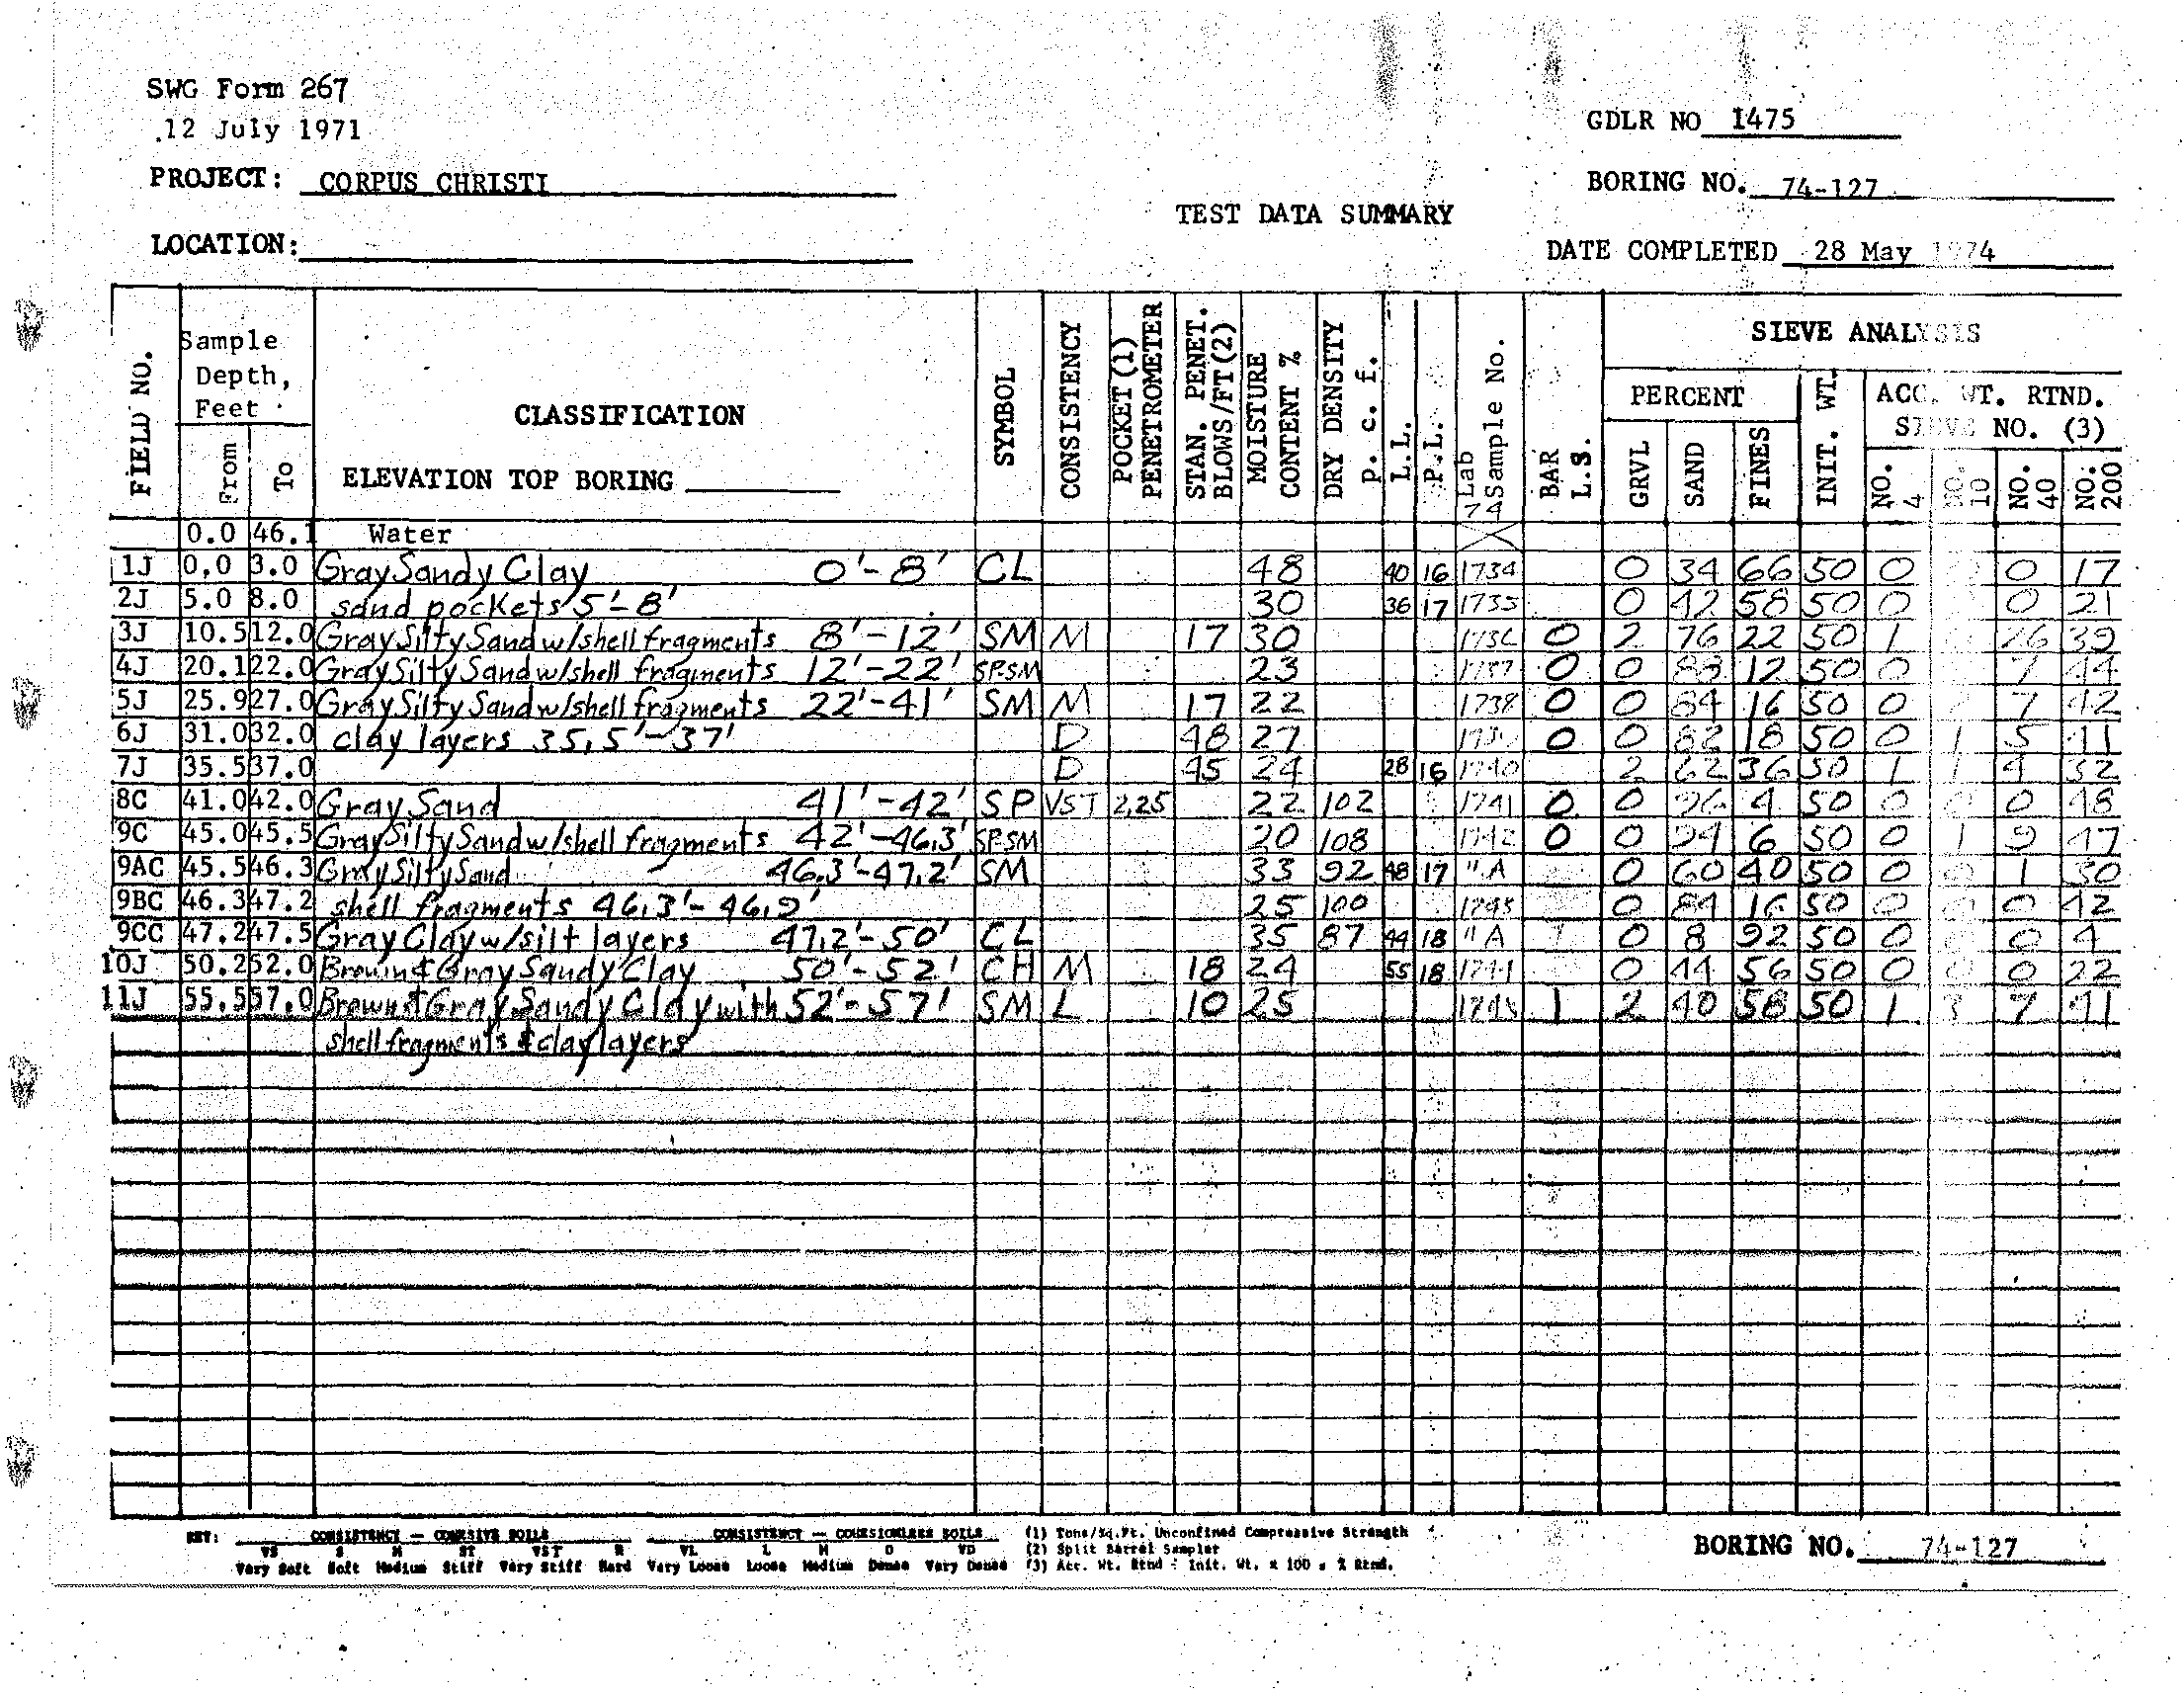 SWG Form 267
12 July 1971
GDLR NO 1475
PROJECT: CORPUS CHRISTI
BORING NO. 74-127
TEST DATA SUMMARY
LOCATION:
DATE COMPLETED 28 May 1974
FIELD NO.
Sample Depth, Feet
From
To
CLASSIFICATION
ELEVATION TOP BORING
SYMBOL
CONSISTENCY
POCKET (1) PENETROMETER
STAN. PENET. BLOWS/FT (2)
MOISTURE CONTENT %
DRY DENSITY p. c. f.
L.L.
P.L.
Lab Sample No.
74
BAR L.S.
SIEVE ANALYSIS
PERCENT
GRVL
SAND
FINES
INIT. WT.
ACC. WT. RTND.
SIEVE NO. (3)
NO. 4
NO. 10
NO. 40
NO. 200
0.0 46.1 Water
1J 0.0 3.0 Gray Sandy Clay 0'-8' CL 48 40 16 1734 0 34 66 50 0 0 17
2J 5.0 8.0 sand pockets 5'-8' 30 36 17 1735 0 42 58 50 0 0 21
3J 10.5 12.0 Gray Silty Sand w/shell fragments 8'-12' SM M 17 30 1736 0 2 76 22 50 1 39
4J 20.1 22.0 Gray Silty Sand w/shell fragments 12'-22' SP-SM 23 1737 0 0 88 12 50 0 7 44
5J 25.9 27.0 Gray Silty Sand w/shell fragments 22'-41' SM M 17 22 1738 0 0 84 16 50 0 7 42
6J 31.0 32.0 clay layers 35.5'-37' D 48 27 0 0 82 18 50 0 1 5 41
7J 35.5 37.0 D 45 24 28 16 1740 2 62 36 50 1 1 4 32
8C 41.0 42.0 Gray Sand 41'-42' SP VST 2.25 22 102 1741 0 0 96 4 50 0 0 0 48
9C 45.0 45.5 Gray Silty Sand w/shell fragments 42'-46.3' SP-SM 20 108 1742 0 0 94 6 50 0 1 9 47
9AC 45.5 46.3 Gray Silty Sand 46.3'-47.2' SM 33 92 48 17 "A 0 60 40 50 0 0 1 30
9BC 46.3 47.2 shell fragments 46.3'-46.9' 25 100 0 84 16 50 0 0 0 42
9CC 47.2 47.5 Gray Clay w/silt layers 47.2'-50' CL 35 87 44 18 "A 0 8 92 50 0 0 4
10J 50.2 52.0 Brown & Gray Sandy Clay 50'-52' CH M 18 24 55 18 0 44 56 50 0 0 0 22
11J 55.5 57.0 Brown & Gray Sandy Clay with 52'-57' SM L 10 25 1 2 40 58 50 1 3 7 41
shell fragments & clay layers
KEY: CONSISTENCY — COHESIVE SOILS CONSISTENCY — COHESIONLESS SOILS (1) Tons/Sq.Ft. Unconfined Compressive Strength
VS S M ST VST H VL L M D VD (2) Split Barrel Sampler
Very Soft Soft Medium Stiff Very Stiff Hard Very Loose Loose Medium Dense Very Dense (3) Acc. Wt. Rtnd ÷ Init. Wt. x 100 = % Rtnd.
BORING NO. 74-127